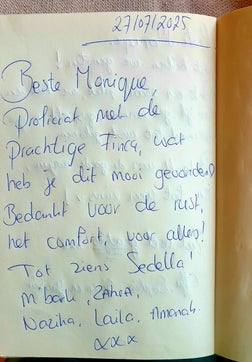 27/07/2025
Beste Monique,
Proficiat met de
prachtige Finca, wat
heb je dit mooi gevonden!
Bedankt voor de rust,
het comfort, voor alles!
Tot ziens Sedella!
M'barka, ZAHRA,
Naziha, Laila, Amanah.
xxx